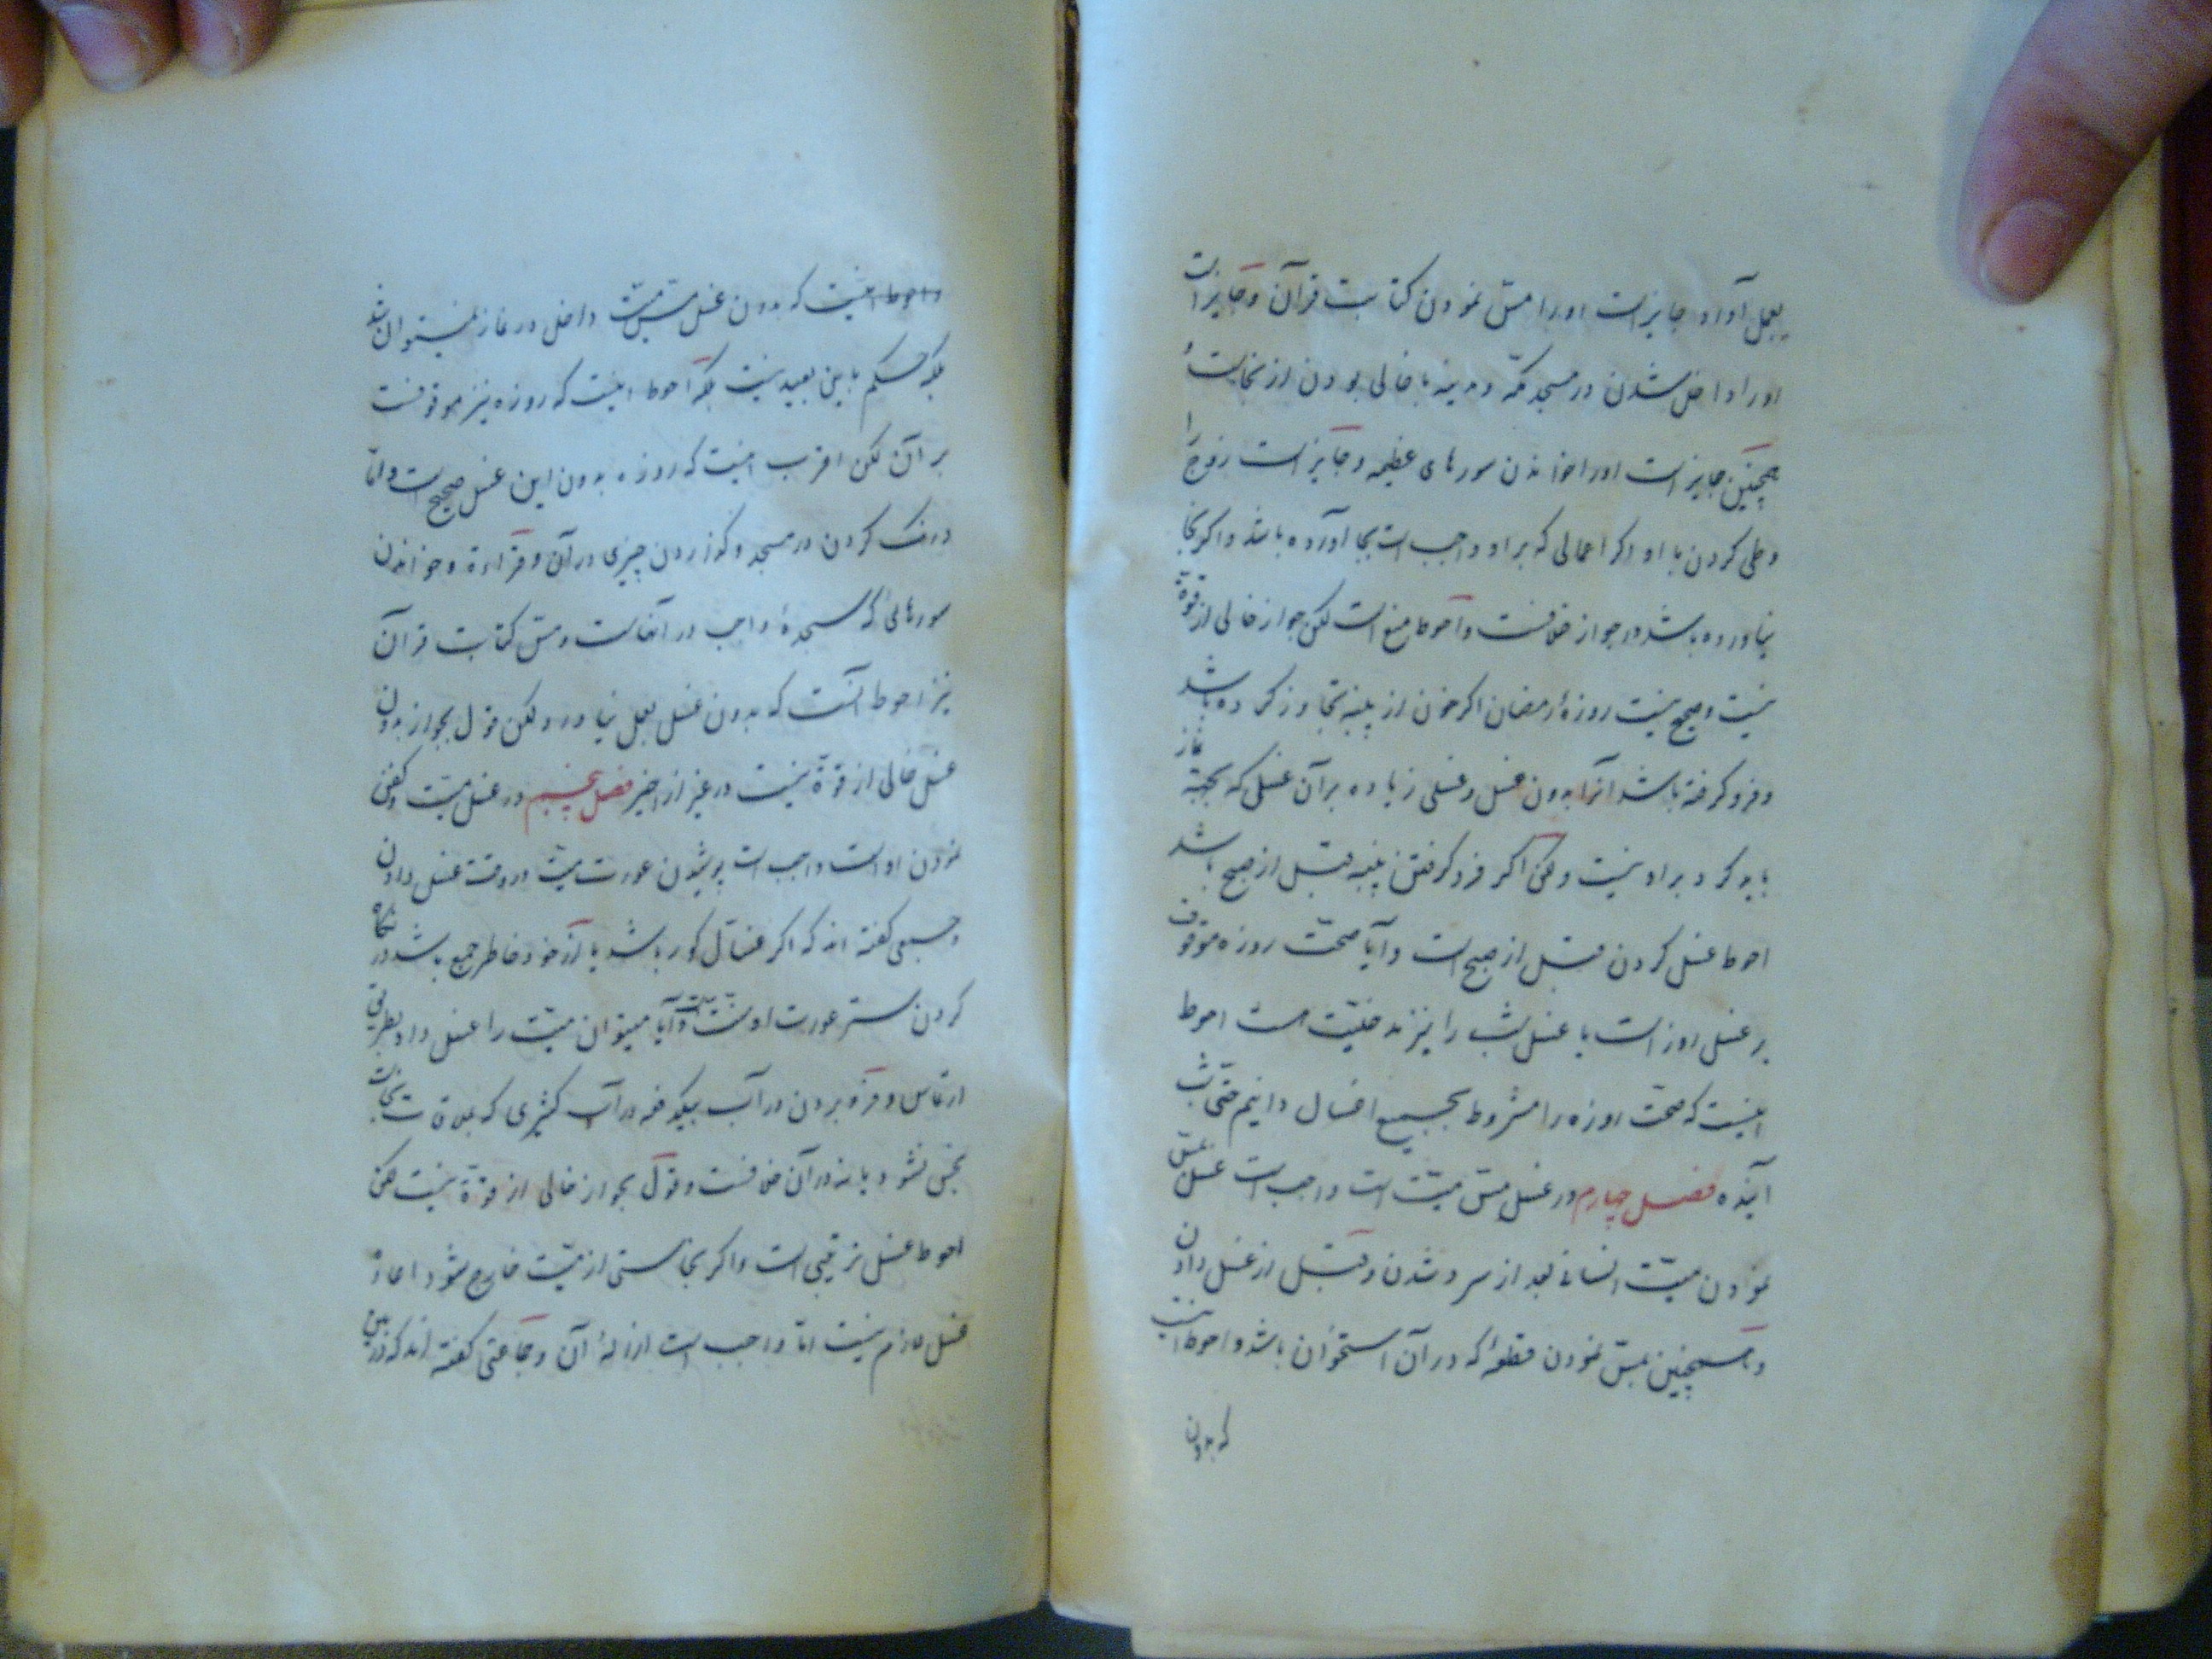 بعمل آورد جایز است او را مسّ نمودن کتابت قرآن و جایز است
او را داخل شدن در مسجد مکّه و مدینه با خالی بودن از نجاست و
همچنین جایز است او را خواندن سورهای عظیمه و جایز است زوج را
وطی کردن با او اگر اعمالی که بر او واجب است بجا آورده باشد و اگر بجا
نیاورده باشد در جواز خلافست و احوط منع است لکن جواز خالی از قوة
نیست و صحیح نیست روزهٔ رمضان اگر خون از پنبه تجاوز کرده باشد
و فرو گرفته باشد آنرا بدون غسل و غسلی زیاده بر آن غسلی که بجهة نماز
باید کرد بر او نیست و لکن اگر فرو گرفتن پنبه قبل از صبح باشد
احوط غسل کردن قبل از صبح است و آیا صحّت روزه موقوف
بر غسل روز است یا غسل شب را نیز مدخلیّت است احوط
اینست که صحّت روزه را مشروط بجمیع اغسال دانیم حتّی شب
آینده فصل چهارم در غسل مسّ میّت است و واجب است غسل بمسّ
نمودن میّت انسان بعد از سرد شدن و قبل از غسل دادن
و همچنین بمسّ نمودن قطعهٔ که در آن استخوان باشد و احوط اینست
که بدون
و احوط اینست که بدون غسل مسّ میّت داخل در نماز نمیتوان شد
بلکه حکم باین بعید نیست بلکه احوط اینست که روزه نیز موقوفست
بر آن لکن اقرب اینست که روزه بدون این غسل صحیح است و امّا
درنک کردن در مسجد و گذاردن چیزی در آن و قراءة و خواندن
سورهائی که سجدهٔ واجب در آنهاست و مسّ کتابت قرآن
نیز احوط آنست که بدون غسل بعمل نیاورد و لکن قول بجواز بدون
غسل خالی از قوّة نیست در غیر از اخیر فصل پنجم در غسل میّت و کفن
نمودن او است واجب است پوشیدن عورت میّت در وقت غسل دادن
و جمعی گفته اند که اگر غسّال کور باشد یا از خود خاطر جمع باشد در نگاه
کردن ستر عورت او سنّت است و آیا میتوان میّت را غسل داد بطریق
ارتماس و فرو بردن در آب بیکدفعه در آب کثیری که بملاقات نجاست
نجس نشود یا نه در آن خلافست و قول بجواز خالی از قوّة نیست لکن
احوط غسل ترتیبی است و اگر نجاستی از میّت خارج شود اعادهٔ
غسل لازم نیست امّا واجب است ازالهٔ آن و جماعتی گفته اند که در این